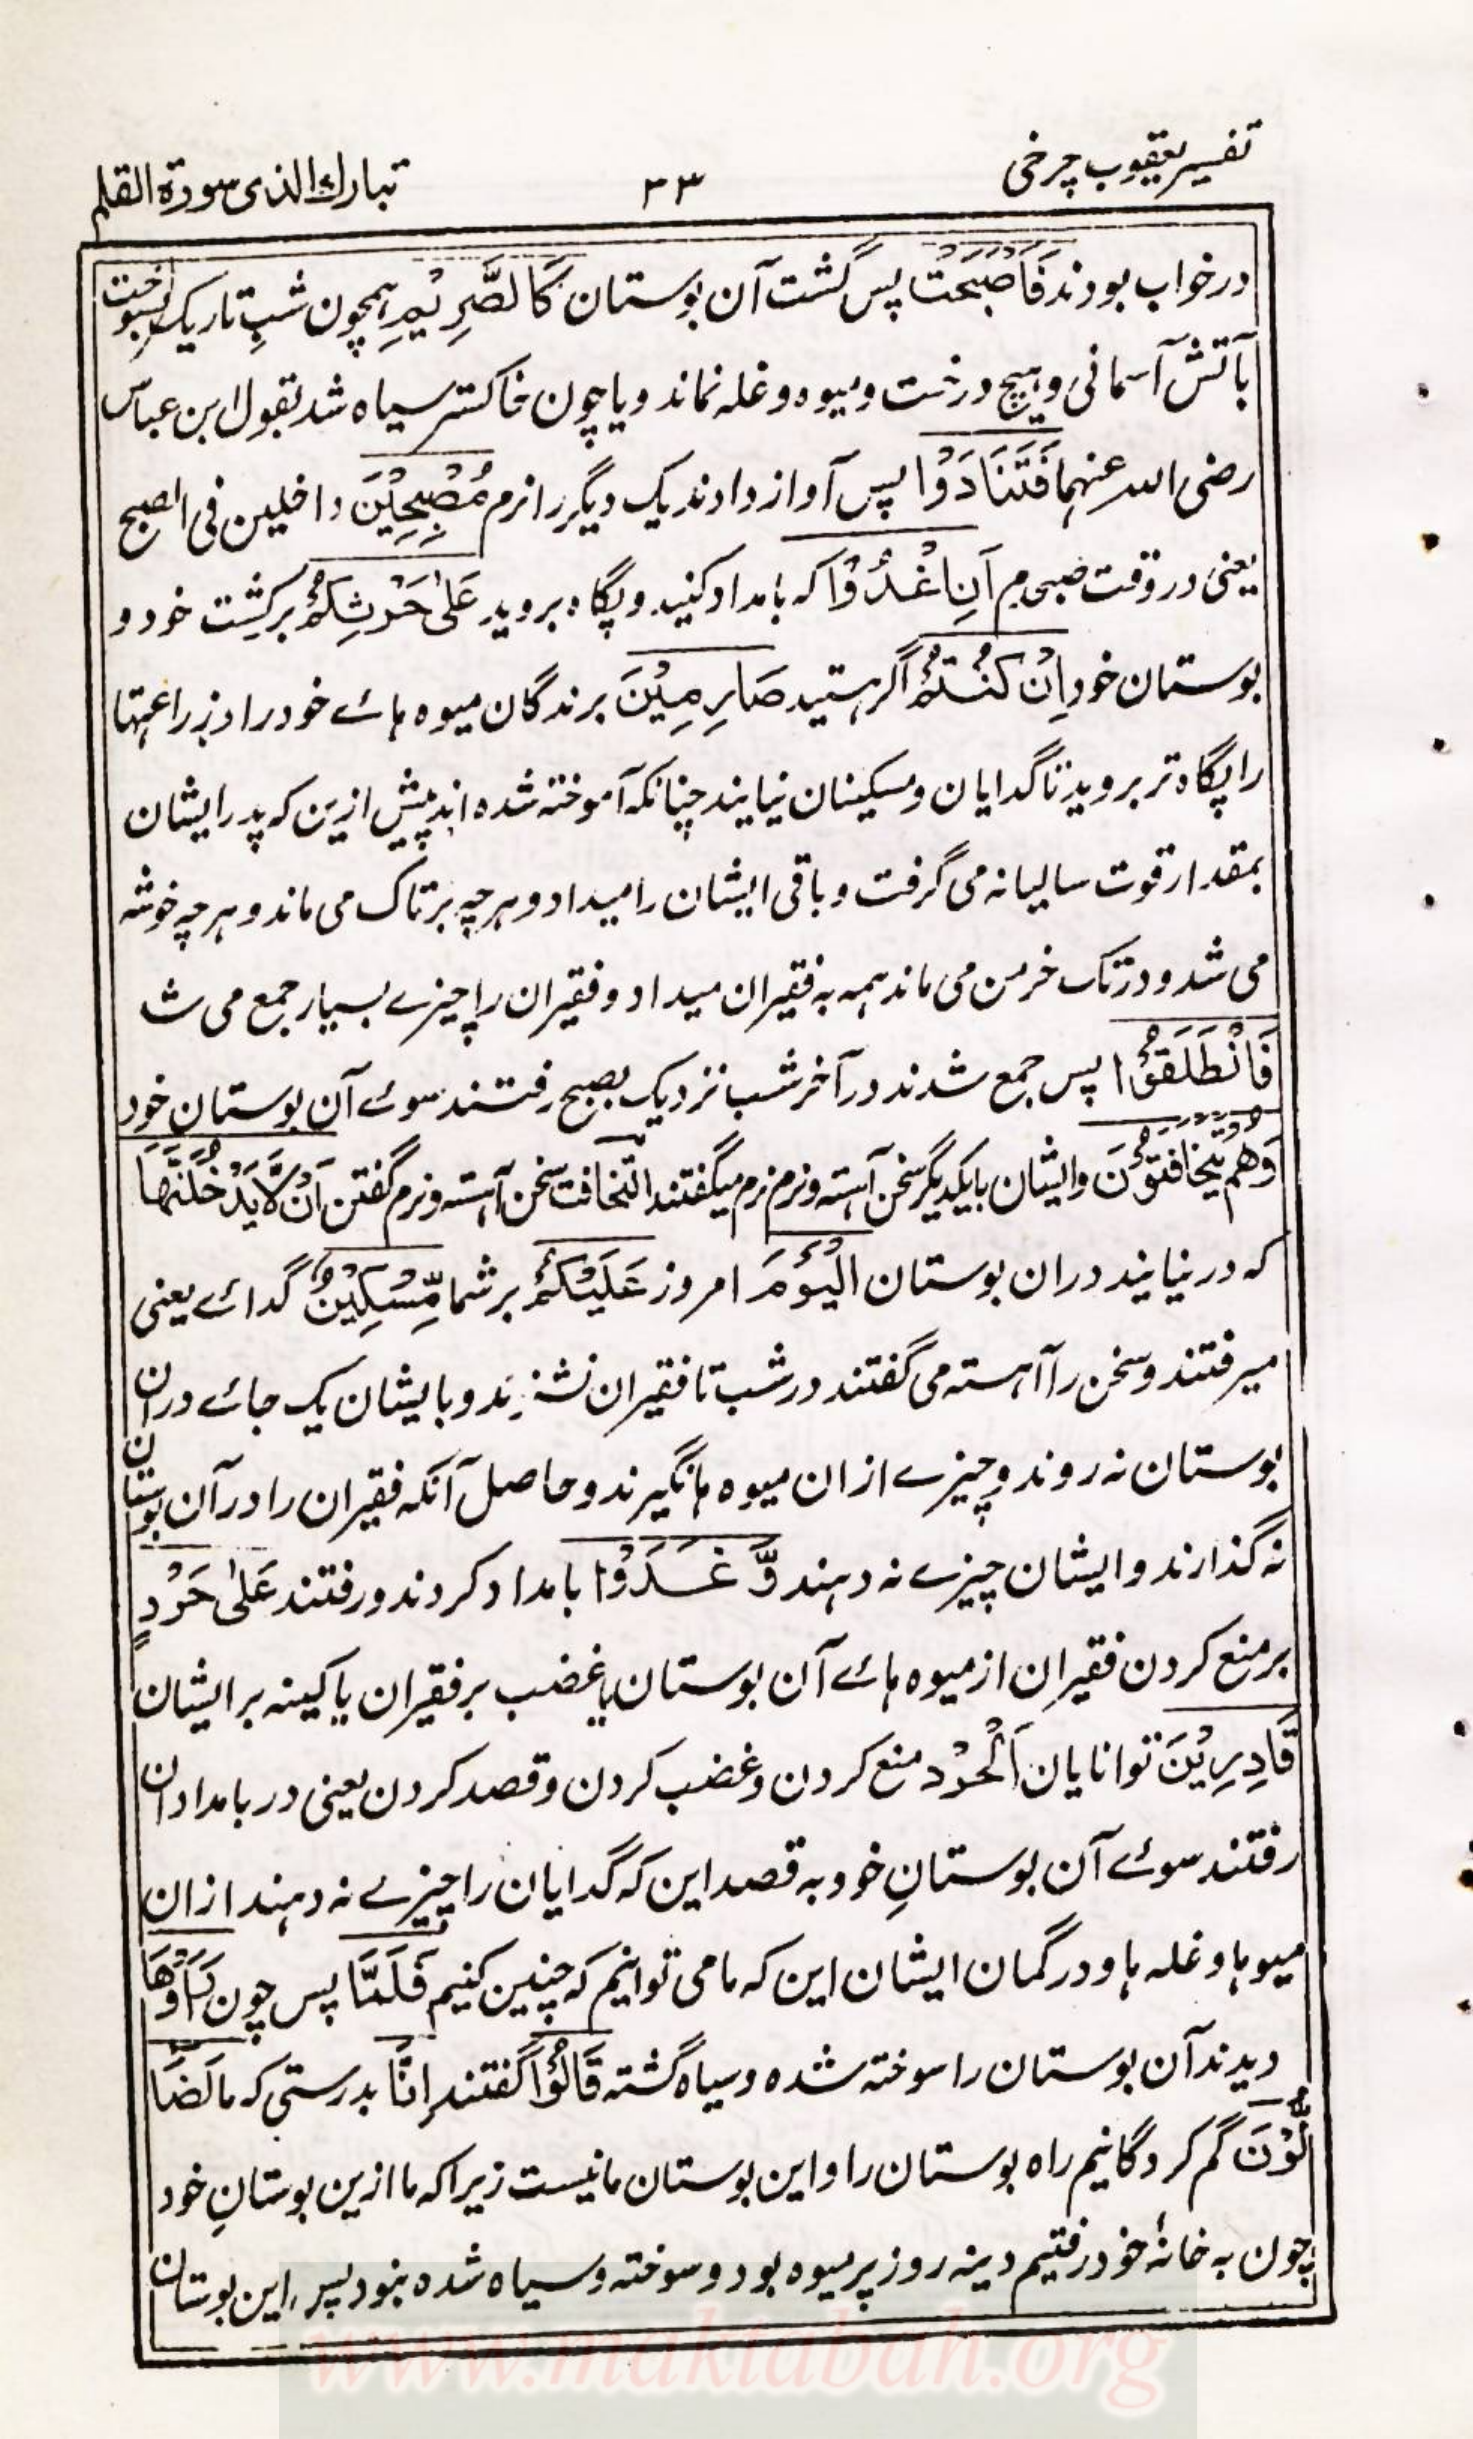 تفسیر یعقوب چرخی ۳۳ تبارك الذی سورة القلم
در خواب بودند فَاَصْبَحَتْ پس گشت آن بوستان كَالصَّرِيْمِ ہمچون شبِ تاریک بسوخت
بآتش آسمانی و ہیچ درخت و میوہ و غلہ نماند و یا چون خاکستر سیاہ شد بقول ابن عباس
رضی اللہ عنہما فَتَنَادَوْا پس آواز دادند یک دیگر را نرم مُصْبِحِيْنَ داخلین فی الصبح
یعنی در وقت صبحدم اَنِ اغْدُوْا کہ بامداد کنید و پگاہ بروید عَلٰی حَرْثِكُمْ بر کشت خود و
بوستان خود اِنْ كُنْتُمْ اگر ہستید صَارِمِيْنَ برندگان میوہ ہائے خود را و زراعتہا
را پگاہ تر بروید تا گدایان و مسکینان نیایند چنانکہ آموختہ شدہ اند پیش ازین کہ پدر ایشان
بمقدار قوت سالیانہ می گرفت و باقی ایشان را میداد و ہرچہ بر تاک می ماند و ہرچہ خوشہ
می شد و در تک خرمن می ماند ہمہ بہ فقیران میداد و فقیران را چیزے بسیار جمع می ش
فَانْطَلَقُوْا پس جمع شدند در آخر شب نزدیک بصبح رفتند سوئے آن بوستان خود
وَهُمْ يَتَخَافَتُوْنَ و ایشان بایکدیگر سخن آہستہ و نرم نرم میگفتند التخافت سخن آہستہ و نرم گفتن اَنْ لَّا يَدْخُلَنَّهَا
کہ در نیایند دران بوستان الْيَوْمَ امروز عَلَيْكُمْ بر شما مِّسْكِيْنٌ گدائے یعنی
میرفتند و سخن را آہستہ می گفتند در شب تا فقیران نشنوند و بایشان یک جائے دران
بوستان نہ روند و چیزے ازان میوہ ہا نگیرند و حاصل آنکہ فقیران را در آن بوستان
نہ گذارند و ایشان چیزے نہ دہند وَّ غَدَوْا بامداد کردند و رفتند عَلٰی حَرْدٍ
بر منع کردن فقیران از میوہ ہائے آن بوستان یا غضب بر فقیران یا کینہ بر ایشان
قَادِرِيْنَ توانایان اَلْحَرْد منع کردن و غضب کردن و قصد کردن یعنی در بامدادان
رفتند سوئے آن بوستانِ خود بہ قصد این کہ گدایان را چیزے نہ دہند ازان
میوہا و غلہ ہا و در گمان ایشان این کہ ما می توانیم کہ چنین کنیم فَلَمَّا پس چون رَاَوْهَا
دیدند آن بوستان را سوختہ شدہ و سیاہ گشتہ قَالُوْٓا گفتند اِنَّا بدرستی کہ ما لَضَا
لُّوْنَ گم کردگانیم راہ بوستان را و این بوستان ما نیست زیرا کہ ما ازین بوستانِ خود
چون بہ خانۂ خود رفتیم دینہ روز پر میوہ بود و سوختہ و سیاہ شدہ نبود پس این بوستان
www.maktabah.org